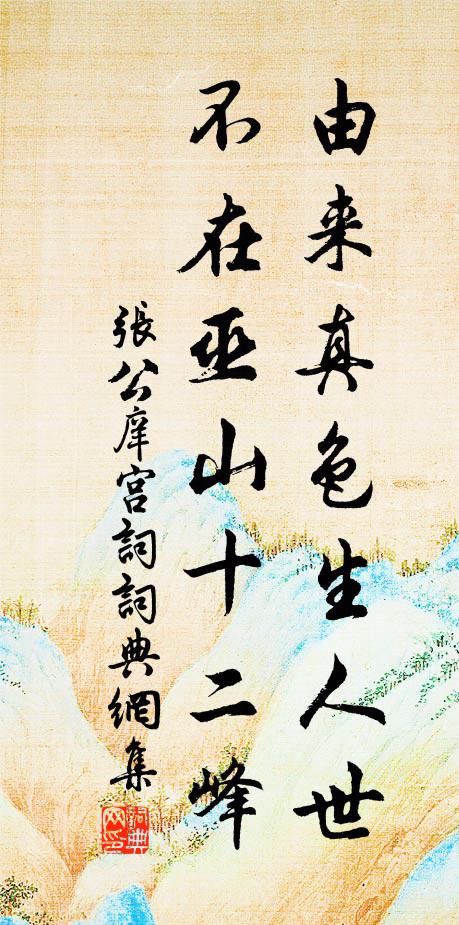 由来真色生人世
不在巫山十二峰
張公庠宫詞詞典網集
詞典
网印